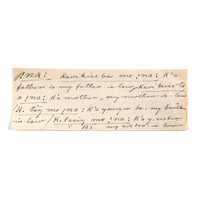 ana: Kavikius ba mo; na: K's
father is my father in law Kavikius to
a; na: K's mother, my mother in law
K. tiy mo; na: K's younger bo. my brother
in law / K. lariy mo; na: K's y. sister
'' my sister in law